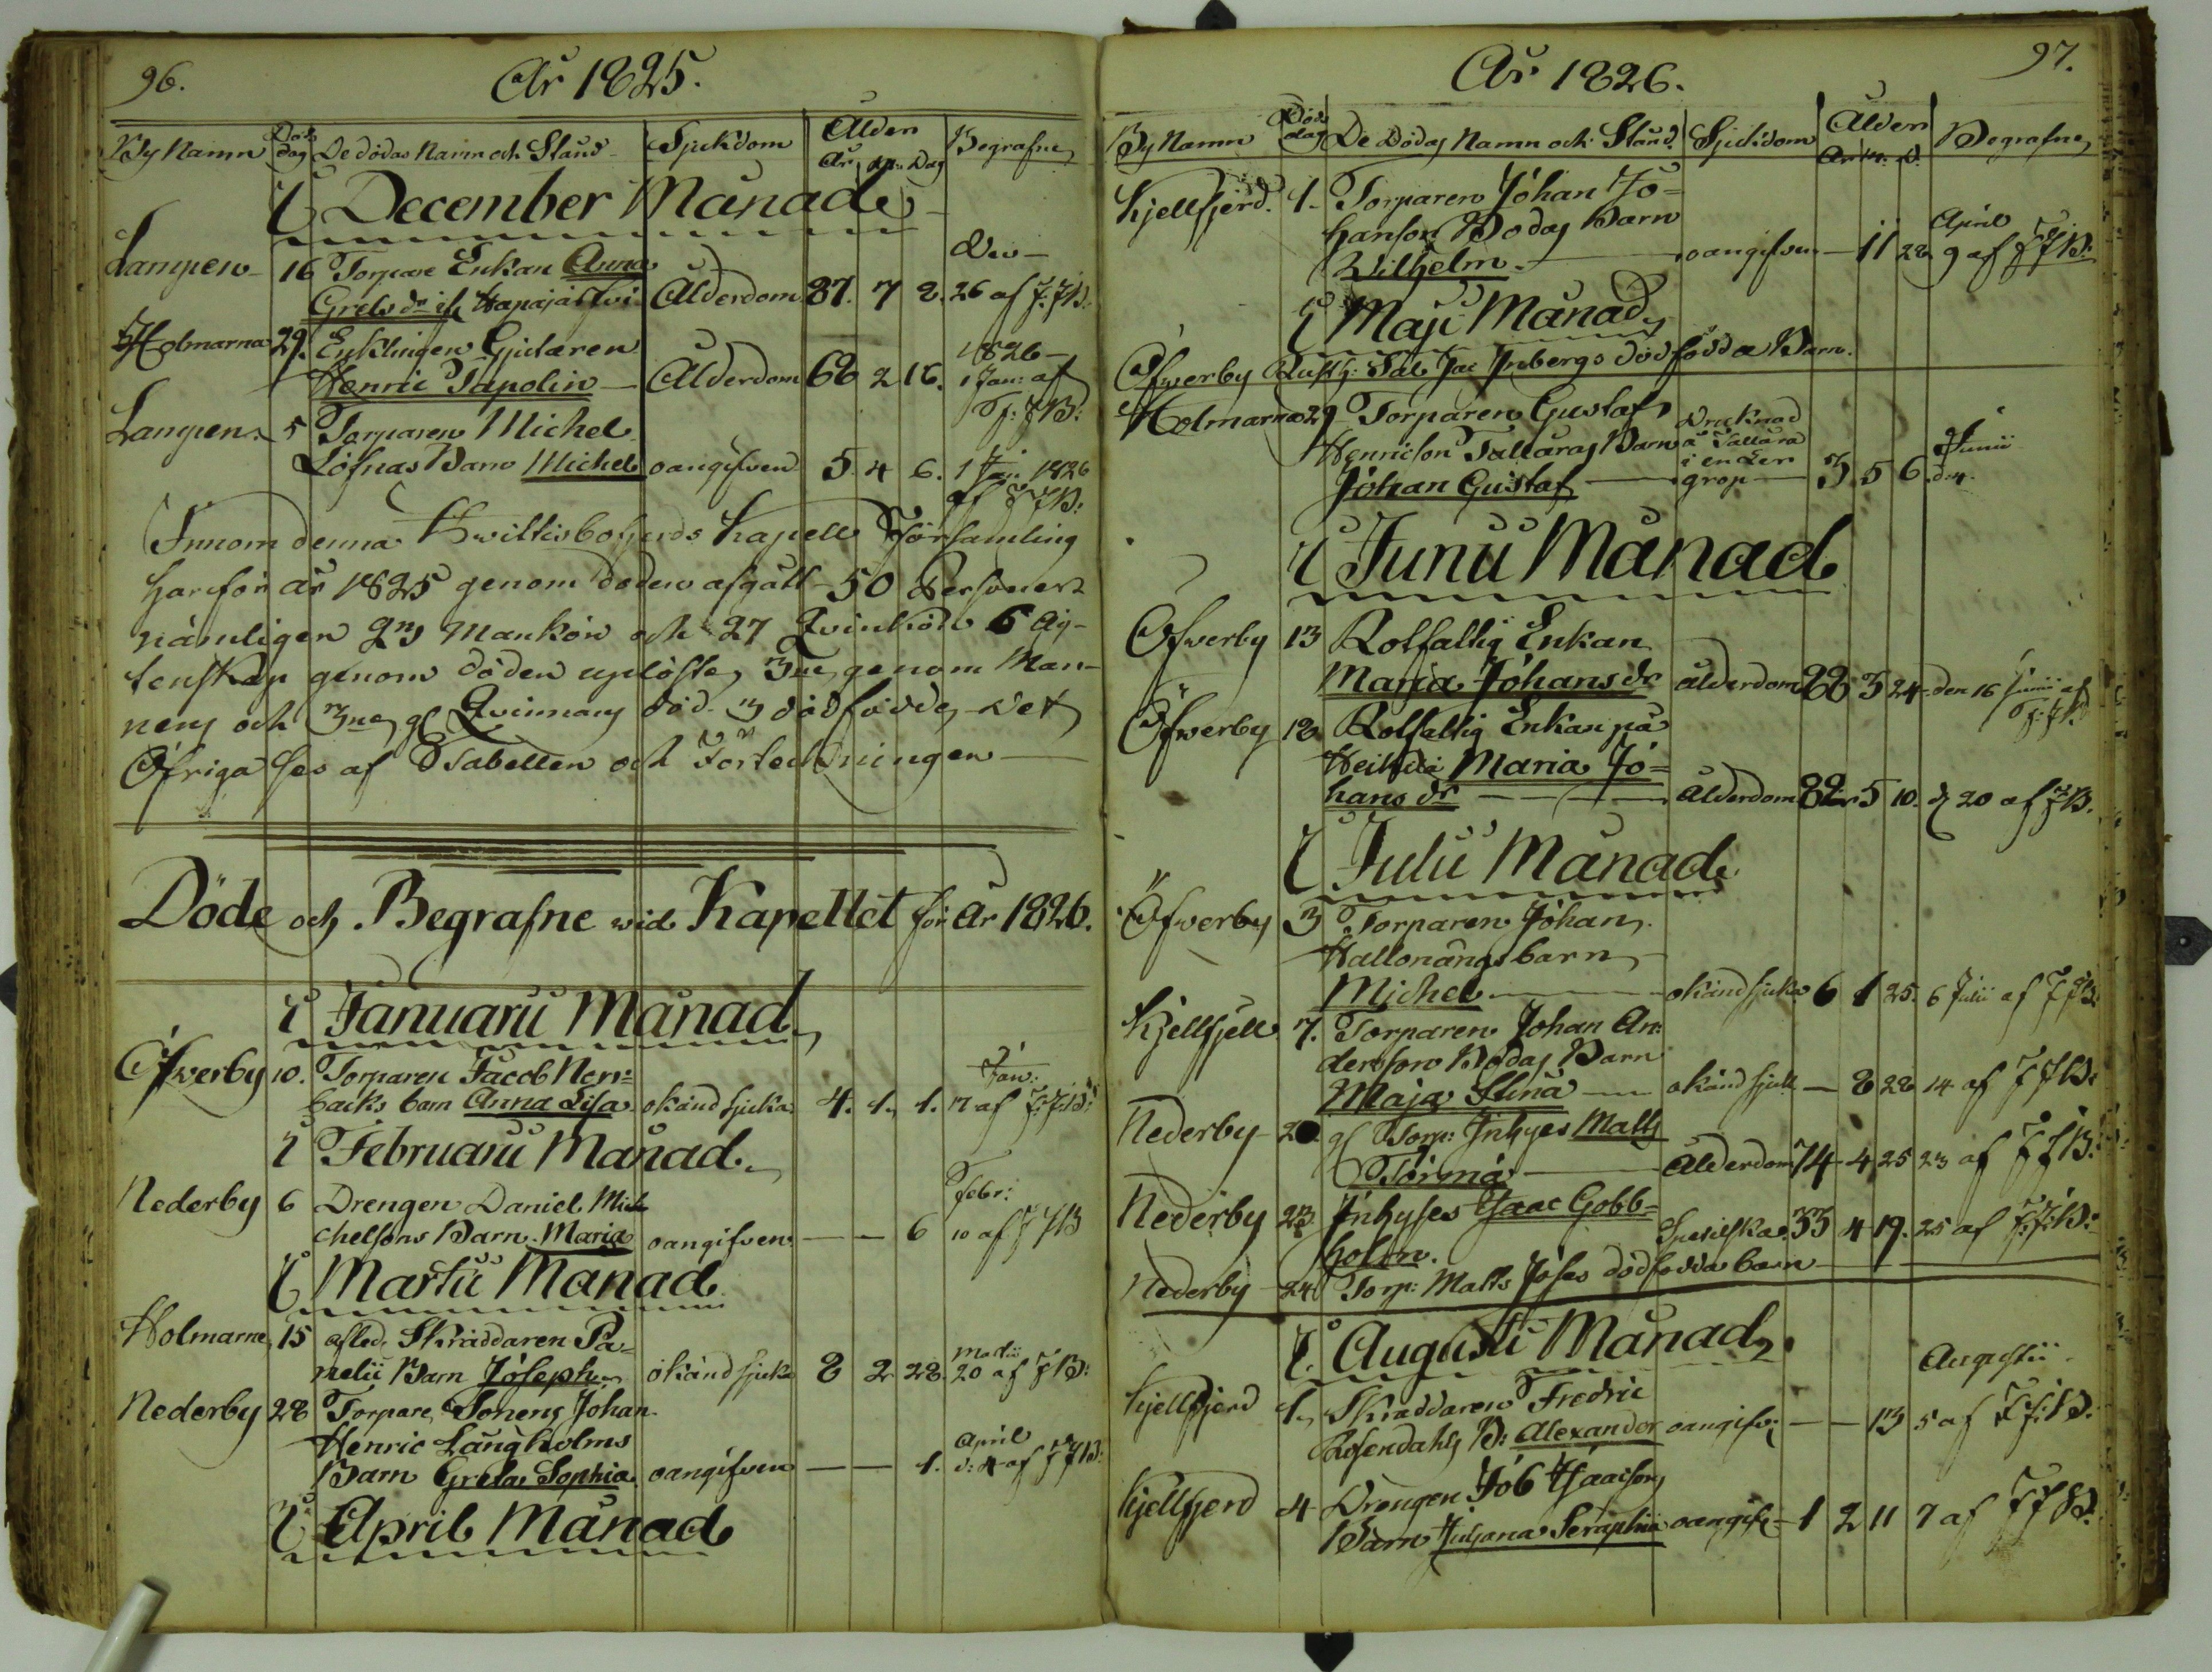 96.
År 1825.
By Namn
Död dag
De dödas Namn och Stånd
Sjukdom
Ålder
År Mn: Dag
Begrafne
I December Månad
Lampen 16 Torpare Enkan Anna Dec
Grels dr Ålderdom 87. 7 2. 26 af J: JB:
Holmarna 29. Enklingen Gjutaren 1826
Henric Tapolin Ålderdom 68 2 18. 1 Jan: af
J: JB:
Lampen 5 Torparen Michel
Löfnas Barn Michel oangifven 5 4 6. 1 Jan: 1826
af J JB:
Innom denna Kwiltisbofjerds Kapell Församling
har för år 1825 genom döden afgått 50 Personer
nämligen 23 Mankön och 27 Qvinkön 6 Äg-
tenskap genom döden uplöste, 3ne genom Man-
nens och 3ne gl Qvinnans död. 3 dödfödde. Det
Öfriga ses af Tabellen och Förteckningen
Döde och Begrafne wid Kapellet för år 1826.
I Januarii Månad
Öfwerby 10. Torparen Jacob Norr- Jan:
backs barn Anna Lisa okänd sjuka 4. 1. 1. 17 af J: JB:
I Februarii Månad
Nederby 6 Drengen Daniel Mi- Febr:
chelsons Barn Maria oangifven — — 6 10 af J JB
I Martii Månad
Holmarne 15 afled. Skräddaren Pa- Martii
nelii Barn Joseph okänd sjuka 8 2 28. 20 af JB:
Nederby 28 Torpare Sonens Johan
Henric Långholms April
Barn Greta Sophia oangifven — — 1. d: 4 af J JB:
I April Månad
97.
År 1826.
By Namn
Död dag
De Dödas Namn och Stånd.
Sjukdom
Ålder
År M: D.
Begrafne
Kjellfjerd. 1. Torparen Johan Jo-
hanson Bodas Barn April
Wilhelm oangifven — 11 28 9 af J JB:
I Maji Månad
Öfwerby Rusth: Sal Jac Inbergs dödfödda Barn.
Holmarna 29 Torparen Gustaf Drucknad
Henricson Tallåras Barn å Tallåra Junii
Johan Gustaf i en Ler grop 3 5 6 d: 4.
I Junii Månad
Öfwerby 13 Rotfattig Enkan
Maria Johans dr ålderdom 88 3 24 den 16 Junii af
J: JB
Öfwerby 18 Rotfattig Enkan på
Heikilä Maria Jo-
hans dr Ålderdom 82 5 10. d 20 af JB.
I Julii Månad
Öfwerby 3 Torparen Johan
Hallonängs barn
Michel okänd sjuka 6 1 25. 6 Julii af J JB:
Kjellfjell 7. Torparen Johan An-
dersson Bodas Barn
Maja Stina okänd sjuk — 8 28 14 af J JB:
Nederby 20. gl Torp: Inhyses Matts
Törmä Ålderdom 74 4 25 23 af J JB:
Nederby 23 Inhyses Isaac Gobb-
holm. 33 4 19. 25 af J: JB:
Nederby 24 Torp: Matts Joses dödfödda barn
I Augusti Månad
Kjellfjerd 1. Skräddaren Fredric Augustii
Rosendahls B: Alexander oangifv: — — 13 5 af J: JB:
Kjellfjerd 4 Drengen Job Isaacsons
Barn Juliana Seraphia oangifv 1 2 11 7 af J JB.